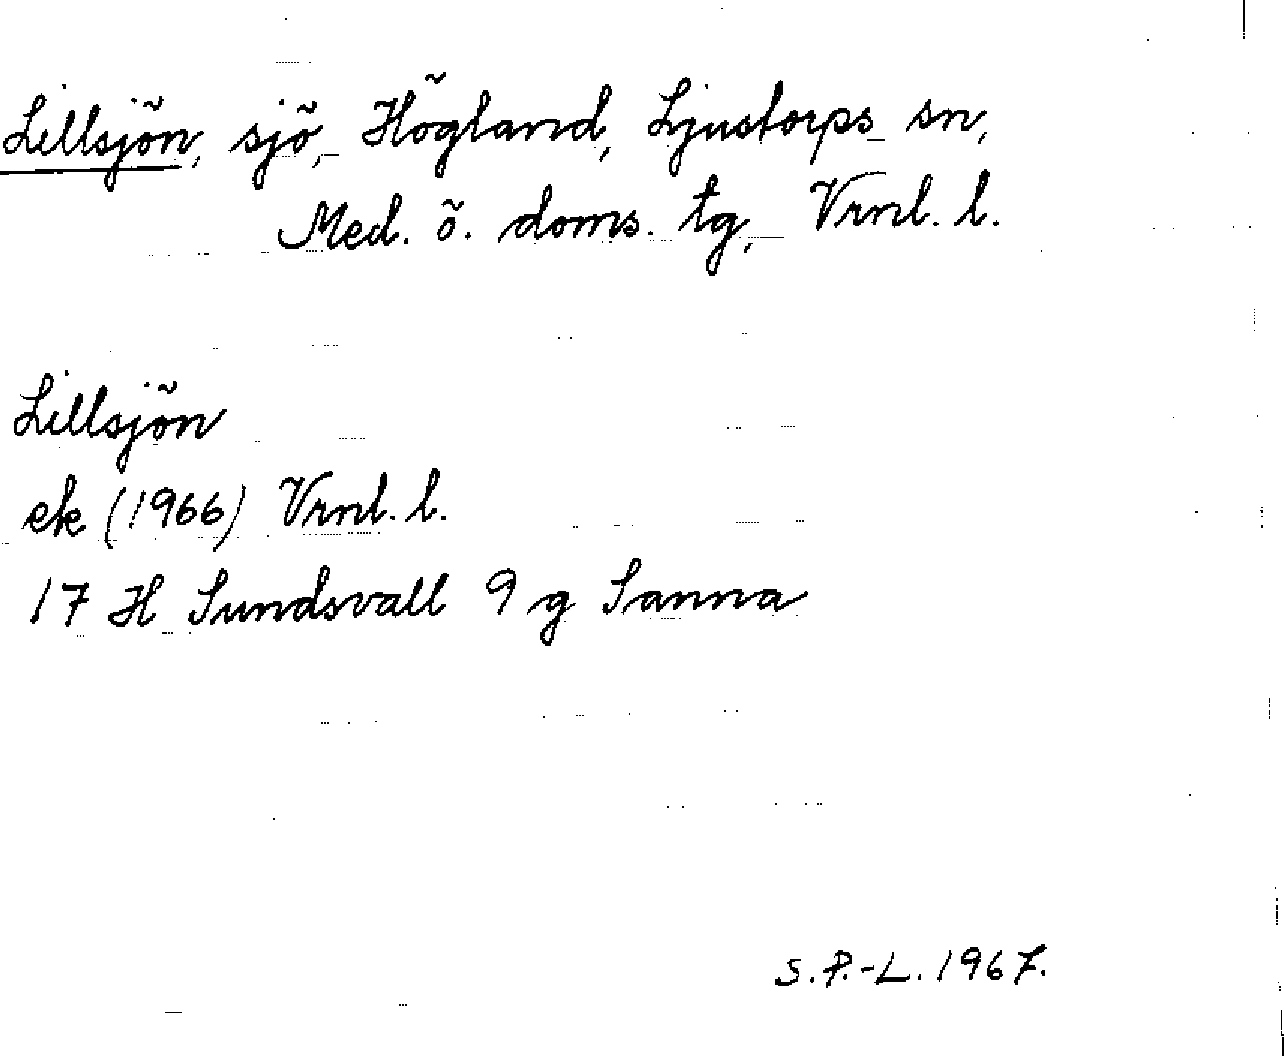 Lillsjön, sjö, Högland, Ljustorps sn,
Med. ö. doms. tg, Vrnl. l.
Lillsjön
ek (1966) Vrnl. l.
17 H Sundsvall 9 g Sanna
S.P.-L. 1967.